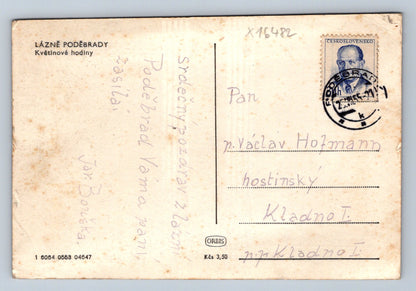 LÁZNĚ PODĚBRADY
Květinové hodiny
X16482
ČESKOSLOVENSKO
PODĚBRADY
k
srdečný pozdrav z lázní
Poděbrad Vám
zasílá
Jan
Pan
p. Václav Hofmann
hostinsky
Kladno I.
p.p. Kladno I.
ORBIS
Kčs 3,50
1 6064 0553 04647